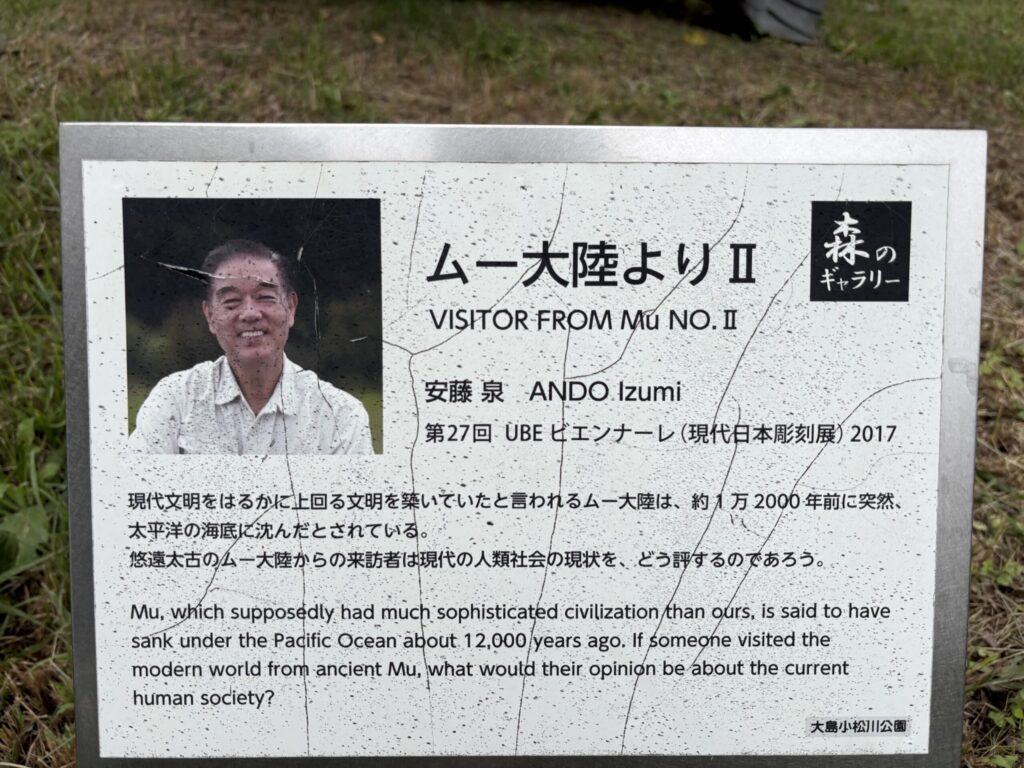 ムー大陸よりⅡ
森の
ギャラリー
VISITOR FROM Mu NO.Ⅱ
安藤 泉 ANDO Izumi
第27回 UBE ビエンナーレ（現代日本彫刻展）2017
現代文明をはるかに上回る文明を築いていたと言われるムー大陸は、約1万2000年前に突然、
太平洋の海底に沈んだとされている。
悠遠太古のムー大陸からの来訪者は現代の人類社会の現状を、どう評するのであろう。
Mu, which supposedly had much sophisticated civilization than ours, is said to have
sank under the Pacific Ocean about 12,000 years ago. If someone visited the
modern world from ancient Mu, what would their opinion be about the current
human society?
大島小松川公園